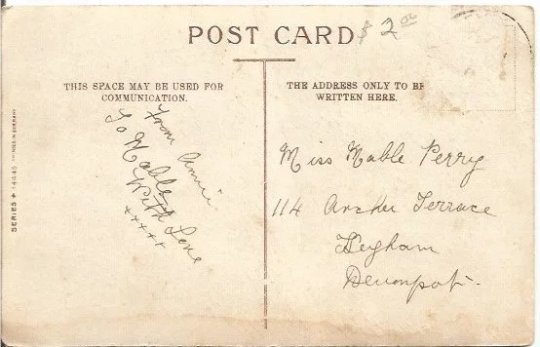 POST CARD
$ 2.00
THIS SPACE MAY BE USED FOR
COMMUNICATION.
THE ADDRESS ONLY TO BE
WRITTEN HERE.
From Annie
To Mable
With Love
xxxxx
Miss Mable Perry
114 Archer Terrace
Keyham
Devonport.
SERIES